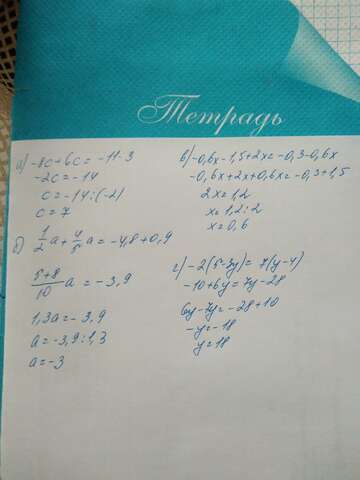 Тетрадь
а) -8c+6c = -11-3
-2c = -14
c = -14:(-2)
c = 7
б) 1/2 a + 4/5 a = -4,8+0,9
5+8/10 a = -3,9
1,3a = -3,9
a = -3,9:1,3
a = -3
в) -0,6x-1,5+2x = -0,3-0,6x
-0,6x+2x+0,6x = -0,3+1,5
2x = 1,2
x = 1,2:2
x = 0,6
г) -2(5-3y) = 7(y-4)
-10+6y = 7y-28
6y-7y = -28+10
-y = -18
y = 18